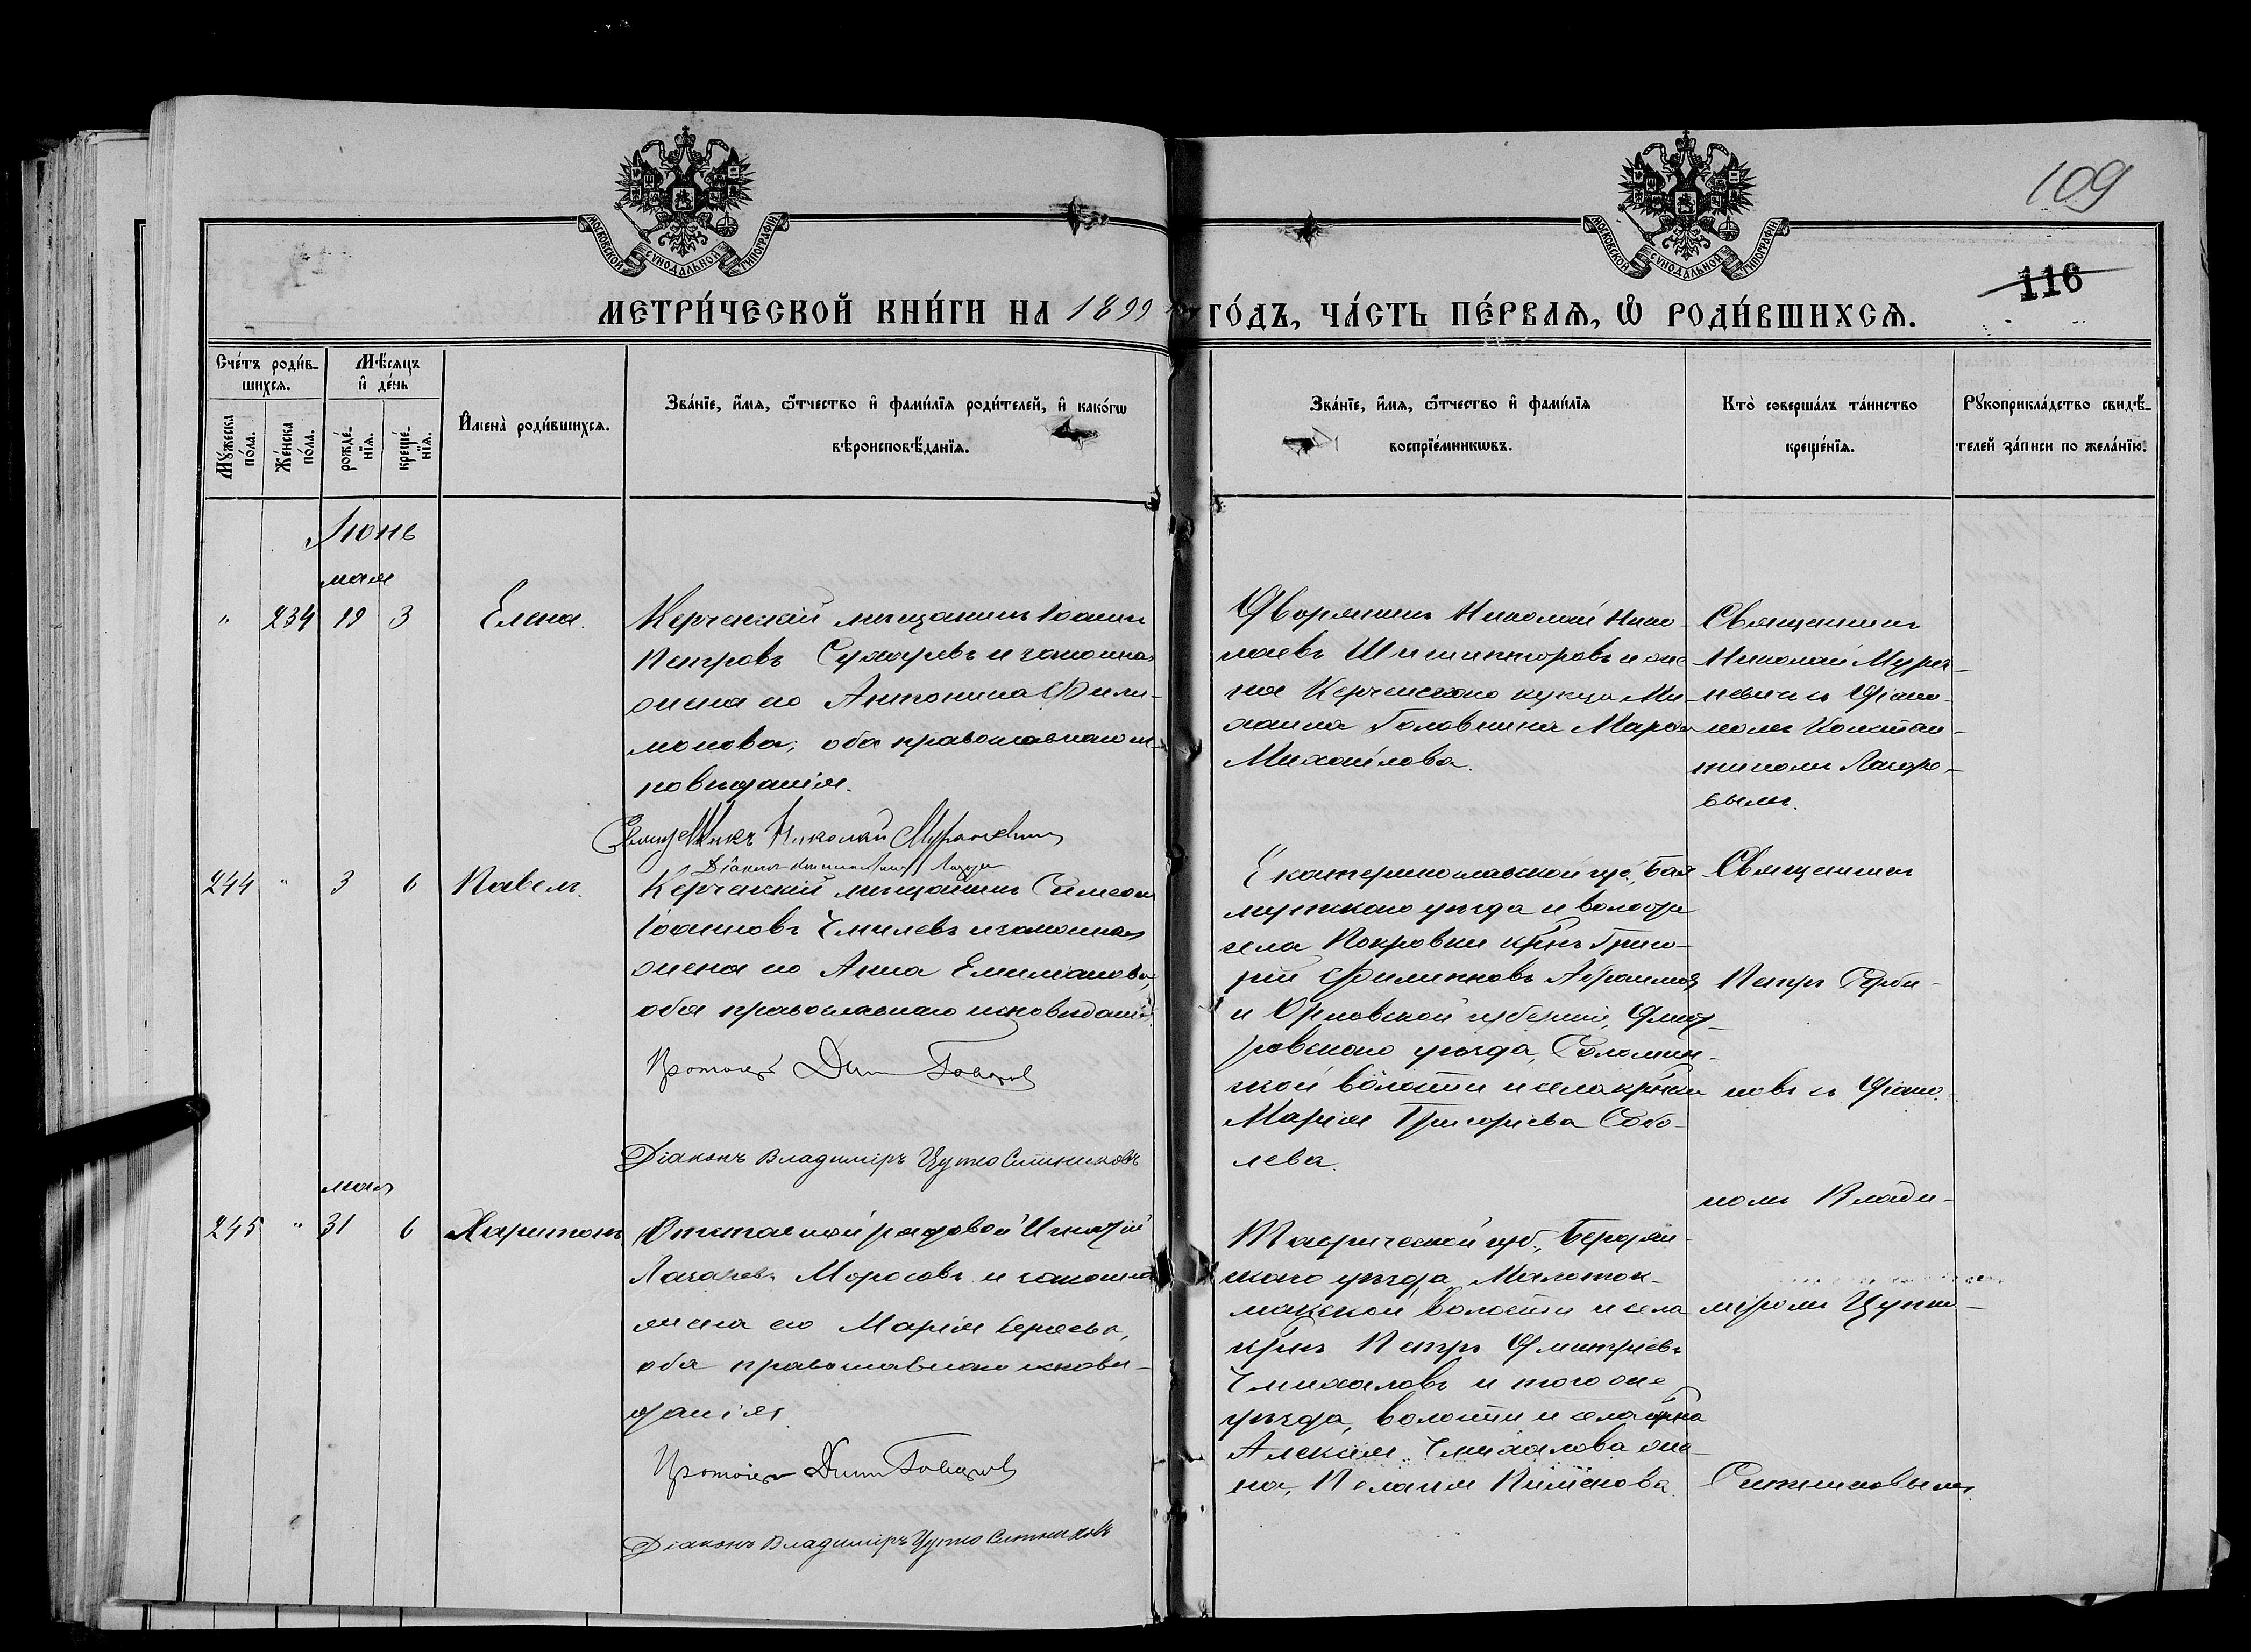 109
116
МОСКОВСКОЙ СУНОДАЛЬНОЙ ТИПОГРАФІИ
МОСКОВСКОЙ СУНОДАЛЬНОЙ ТИПОГРАФІИ
МЕТРИ́ЧЕСКОЙ КНИ́ГИ НА 1899 ГО́ДЪ, ЧА́СТЬ ПЕ́РВАЯ, Ѡ РОДИ́ВШИХСЯ.
Сче́тъ роди́в-
шихся.
Мѣ́сяцъ
и҆ де́нь
Му́жеска по́ла.
Же́нска по́ла.
рожде́-нїя.
креще́-нїя.
И҆мена̀ роди́вшихся.
Зва́нїе, и҆́мя, ѻ҆́тчество и҆ фами́лїя роди́телей, и҆ како́гѡ
вѣроисповѣ́данїя.
Зва́нїе, и҆́мя, ѻ҆́тчество и҆ фами́лїя
воспрїе́мникѡвъ.
Кто̀ соверша́лъ та́инство
креще́нїя.
Рꙋкоприкла́дство свидѣ́-
телей за́писи по жела́нїю.
Іюнь
мая
" 234 19 3 Елена.
Керченскій мѣщанинъ Іоаннъ
Петровъ Сухаревъ и законная
жена его Антонина Фили-
монова; оба православнаго ис-
повѣданія.
Священникъ Николай Мураневичъ
Діаконъ
Дворянинъ Николай Нико-
лаевъ и же-
на Керченскаго купца Ми-
хаила Головкина Марѳа
Михайлова.
Священникъ
Николай Мура-
невичъ съ Діако-
номъ Констан-
тиномъ Лазаре-
вымъ.
244 " 3 6 Павелъ.
Керченскій мѣщанинъ Симеонъ
Іоанновъ Чмилевъ и законная
жена его Анна Емиліанова,
оба православнаго исповѣданія.
Протоіер
Діаконъ Владиміръ Цупко Ситниковъ
Екатеринославской губ., Бах
мутскаго уѣзда и волости
села Покровки крнъ Григо-
рій Филипповъ
и Орловской губерніи, Дмит-
ровскаго уѣзда, Соломин-
ской волости и села крнка
Марія Григоріева Собо-
лева.
Священникъ
Петръ Серби-
новъ съ Діако-
номъ Влади-
міромъ Цупко-
Ситниковымъ.
мая
245 " 31 6 Харитонъ
Отставной рядовой Игнатій
Лазаревъ Моросовъ и законная
жена его Марія
оба православнаго исповѣ-
данія.
Протоіер
Діаконъ Владиміръ Цупко Ситниковъ
Таврической губ., Бердян-
скаго уѣзда, Малоток-
макской волости и села
крнъ Петръ Димитріевъ
Чмихаловъ и того же
уѣзда, волости и села крна
Алексія Чмихалова же-
на, Пелагія Пименова.